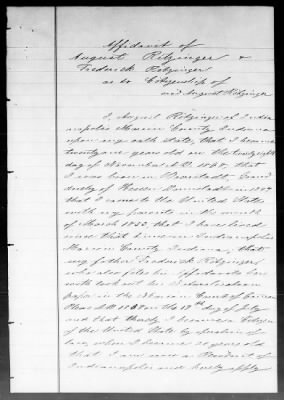 Affidavit of
August Ritzinger &
Frederick Ritzinger
as to Citizenship of
said August Ritzinger
I, August Ritzinger of Indian
apolis Marion County Indiana
upon my oath state, that I became
twenty one years old on the twenty eighth
day of November A.D. 18 that
I was born in Grand
duchy of Hessen Darmstadt in
that I came to the United States
with my parents in the month
of March 1853 that I have lived
since that time in Indianapolis
Marion County, Indiana, that
my father Frederick Ritzinger
who also files his affidavit here
with took out his Naturalization
papers in the Marion Court of Common
Pleas day of July
and that thereby I became a Citizen
of the United States by operation of
law, when I became 21 years old
that I am now a Resident of
Indianapolis and hereby apply